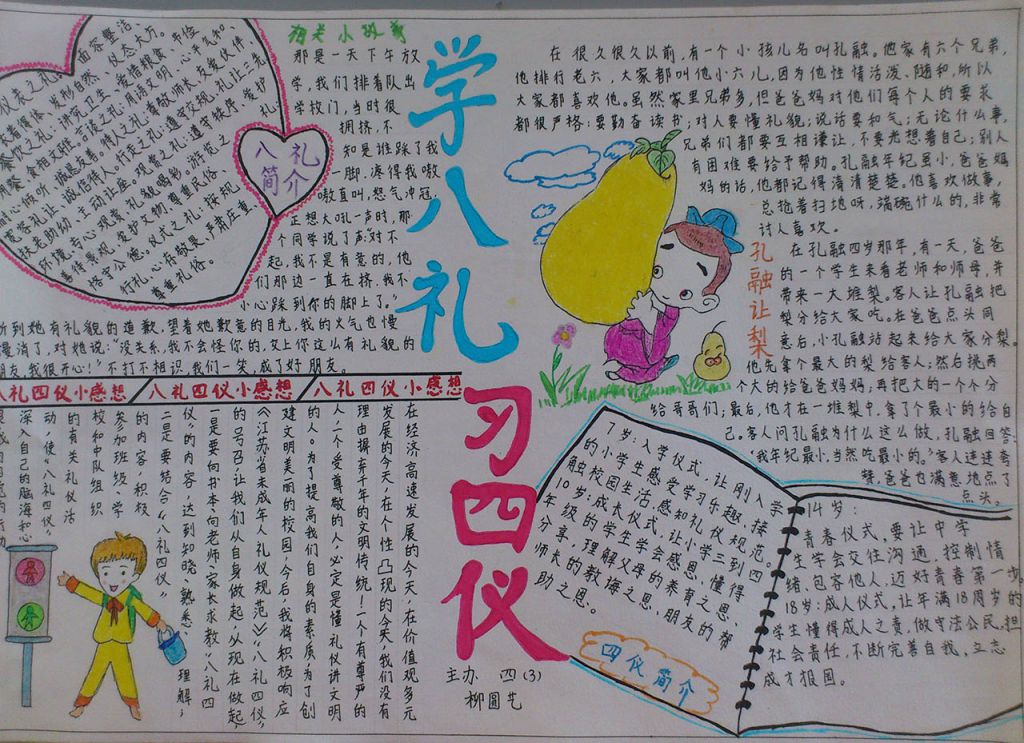 学八礼
习四仪
主办 四(3)
柳圆艺
八礼
简介
仪表之礼:面容整洁、
衣着得体、发形自然、仪态大方。
餐饮之礼:讲究卫生、爱惜粮食、节俭
用餐、食相文雅。言谈之礼:用语文明、心平气和、
耐心倾听、诚恳友善。待人之礼:尊敬师长、友爱伙伴、
宽容礼让、诚信待人。行走之礼:遵守交规、礼让三先、
扶老助幼、主动让座。观赏之礼:遵守秩序、爱护
环境、专心观赏、礼貌喝彩。游览之礼:
善待景观、爱护文物、尊重民俗、
恪守公德。仪式之礼:按规
行礼、心存敬畏、严肃庄重、
尊重礼俗。
那是一天下午放
学,我们排着队出
学校门,当时很
拥挤,不
知是谁踩了我
一脚,疼得我嗷
嗷直叫,怒气冲冠,
正想大吼一声时,那
个同学说了声“对不
起,我不是有意的,他
们那边一直在挤,我不
小心踩到你的脚上了。”
听到她有礼貌的道歉,望着她歉意的目光,我的火气也慢
慢消了,对她说:“没关系,我不会怪你的,交上你这么有礼貌的
朋友,我很开心!”不打不相识,我们一笑,成了好朋友。
八礼四仪小感想 八礼四仪小感想 八礼四仪小感想
在经济高速发展的今天,在价值观多元
发展的今天,在个性凸现的今天,我们没有
理由摒弃千年的文明传统!一个有尊严的
人,一个受尊敬的人,必定是懂礼仪讲文明
的人。为了提高我们自身的素质,为了创
建文明美丽的校园,今后,我将积极响应
《江苏省未成年人礼仪规范》《八礼四仪》
的号召,让我们从自身做起,从现在做起,
一是要向书本、向老师、家长求教“八礼四
仪”的内容,达到知晓、熟悉、理解;
二是要结合《八礼四仪》
的内容,积极
参加班级、学
校和中队组织
的有关礼仪活
动,使“八礼四仪”
深入自己的脑海和心
在很久很久以前,有一个小孩儿名叫孔融。他家有六个兄弟,
他排行老六,大家都叫他小六儿,因为他性情活泼、随和,所以
大家都喜欢他。虽然家里兄弟多,但爸爸妈对他们每个人的要求
都很严格:要勤奋读书;对人要懂礼貌;说话要和气;无论什么事,
兄弟们都要互相谦让,不要老想着自己;别人
有困难要给予帮助。孔融年纪虽小,爸爸妈
妈的话,他都记得清清楚楚。他喜欢做事,
总抢着扫地呀,端碗什么的,非常
讨人喜欢。
孔融让梨
在孔融四岁那年,有一天,爸爸
的一个学生来看老师和师母,并
带来一大堆梨。客人让孔融把
梨分给大家吃。在爸爸点头同
意后,小孔融站起来给大家分梨。
他先拿个最大的梨给客人;然后挑两
个大的给爸爸妈妈;再把大的一个个分
给哥哥们;最后,他才在一堆梨中,拿了个最小的给自
己。客人问孔融为什么这么做。孔融回答:
“我年纪最小,当然吃最小的。”客人连连夸
赞,爸爸也满意地点了
点头。
7岁:入学仪式,让刚入学
的小学生感受学习乐趣,接
触校园生活,感知礼仪规范。
10岁:成长仪式,让小学三到四
年级的学生学会感恩、懂得
分享,理解父母的养育之恩、
师长的教诲之恩、朋友的帮
助之恩。
四仪简介
14岁:
青春仪式,要让中学
生学会交往沟通、控制情
绪、包容他人,迈好青春第一步。
18岁:成人仪式,让年满18周岁的
学生懂得成人之责,做守法公民、担
社会责任,不断完善自我,立志
成才报国。